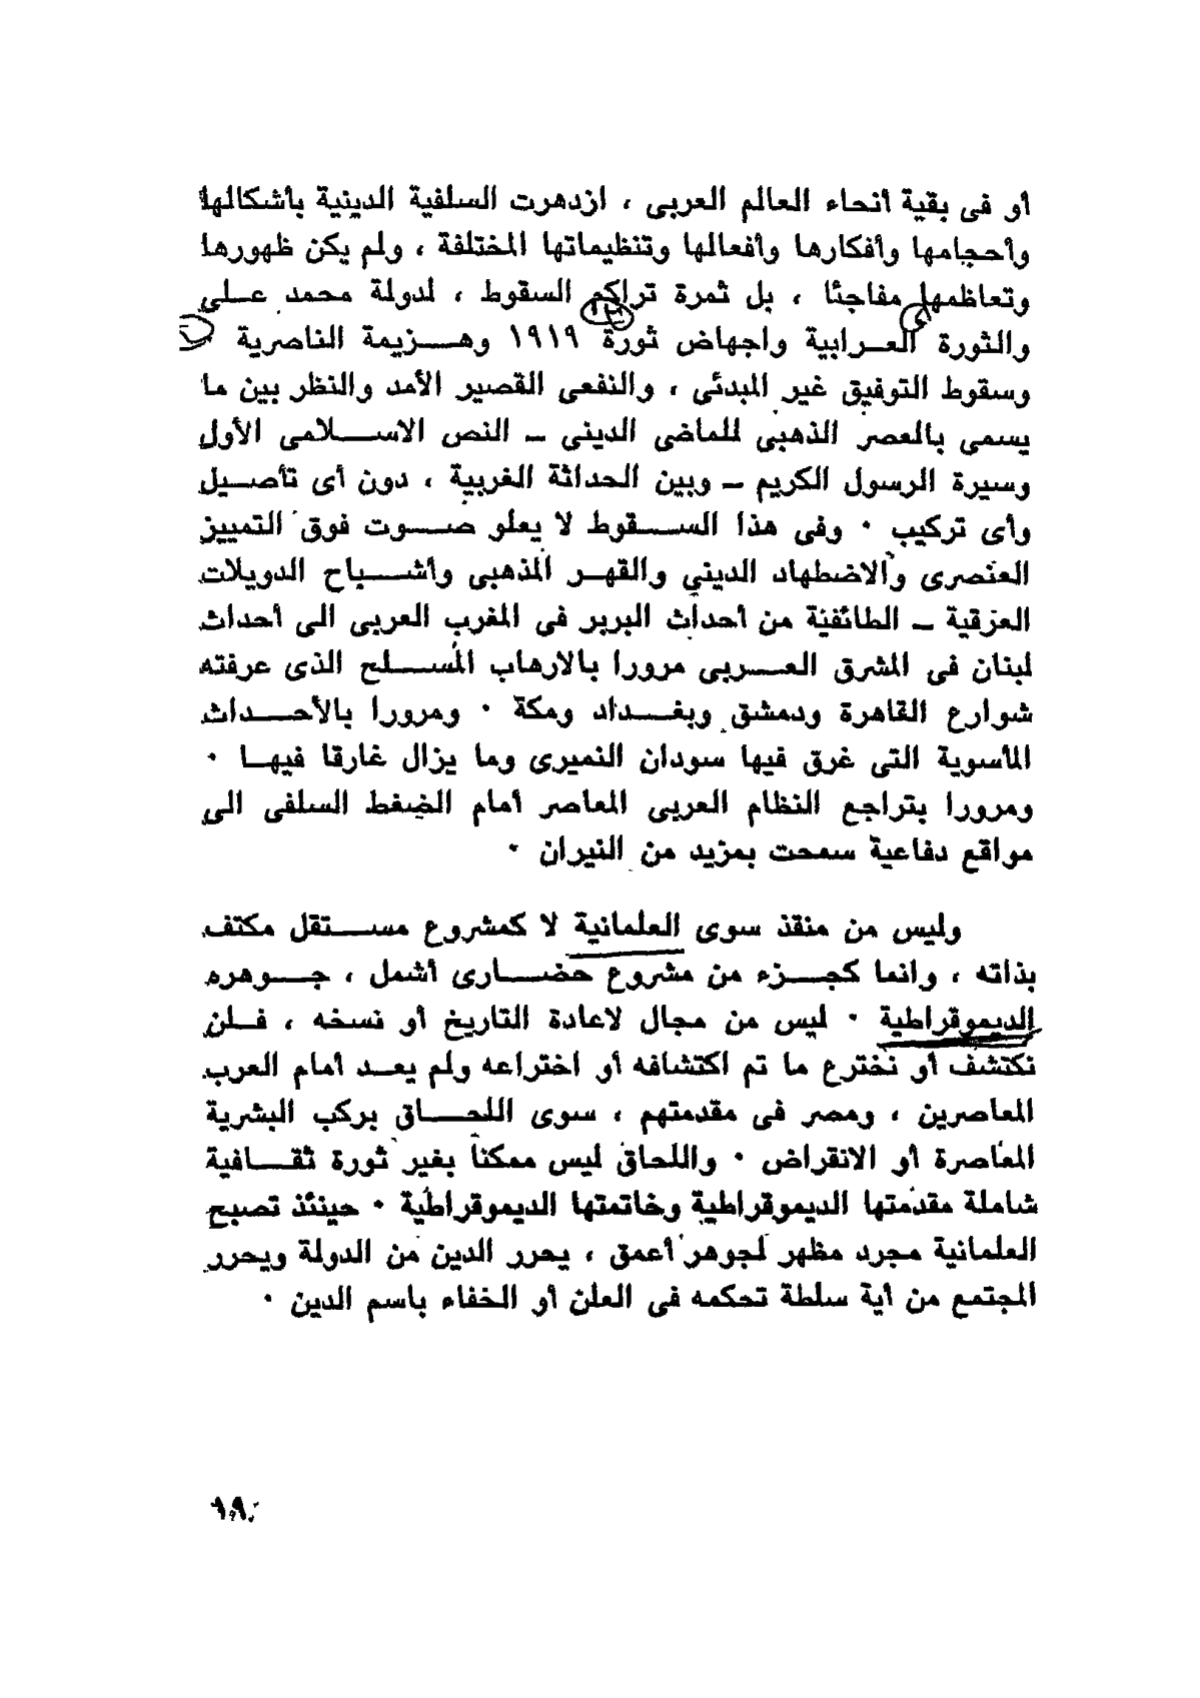 أو فى بقية أنحاء العالم العربى ، ازدهرت السلفية الدينية بأشكالها
وأحجامها وأفكارها وأفعالها وتنظيماتها المختلفة ، ولم يكن ظهورها
وتعاظمها مفاجئا ، بل ثمرة تراكم السقوط ، لدولة محمد عـلى
والثورة العـرابية واجهاض ثورة ١٩١٩ وهـزيمة الناصرية
وسقوط التوفيق غير المبدئى ، والنفعى القصير الأمد والنظر بين ما
يسمى بالعصر الذهبى للماضى الدينى ــ النص الاسـلامى الأول
وسيرة الرسول الكريم ــ وبين الحداثة الغربية ، دون أى تأصـيل
وأى تركيب ٠ وفى هذا السـقوط لا يعلو صـوت فوق التمييز
العنصرى والاضطهاد الدينى والقهـر المذهبى وأشـباح الدويلات
العزقية ــ الطائفية من أحداث البربر فى المغرب العربى الى أحداث
لبنان فى المشرق العـربى مرورا بالارهاب المسـلح الذى عرفته
شوارع القاهرة ودمشق وبغـداد ومكة ٠ ومرورا بالأحـداث
المأسوية التى غرق فيها سودان النميرى وما يزال غارقا فيهـا ٠
ومرورا بتراجع النظام العربى المعاصر أمام الضغط السلفى الى
مواقع دفاعية سمحت بمزيد من النيران ٠
وليس من منقذ سوى العلمانية لا كمشروع مسـتقل مكتف
بذاته ، وانما كجـزء من مشروع حضـارى أشمل ، جـوهره
الديموقراطية ٠ ليس من مجال لاعادة التاريخ أو نسخه ، فـلن
نكتشف أو نخترع ما تم اكتشافه أو اختراعه ولم يعـد أمام العرب
المعاصرين ، ومصر فى مقدمتهم ، سوى اللحـاق بركب البشرية
المعاصرة أو الانقراض ٠ واللحاق ليس ممكنا بغير ثورة ثقـافية
شاملة مقدمتها الديموقراطية وخاتمتها الديموقراطية ٠ حينئذ تصبح
العلمانية مجرد مظهر لجوهر أعمق ، يحرر الدين من الدولة ويحرر
المجتمع من أية سلطة تحكمه فى العلن أو الخفاء باسم الدين ٠